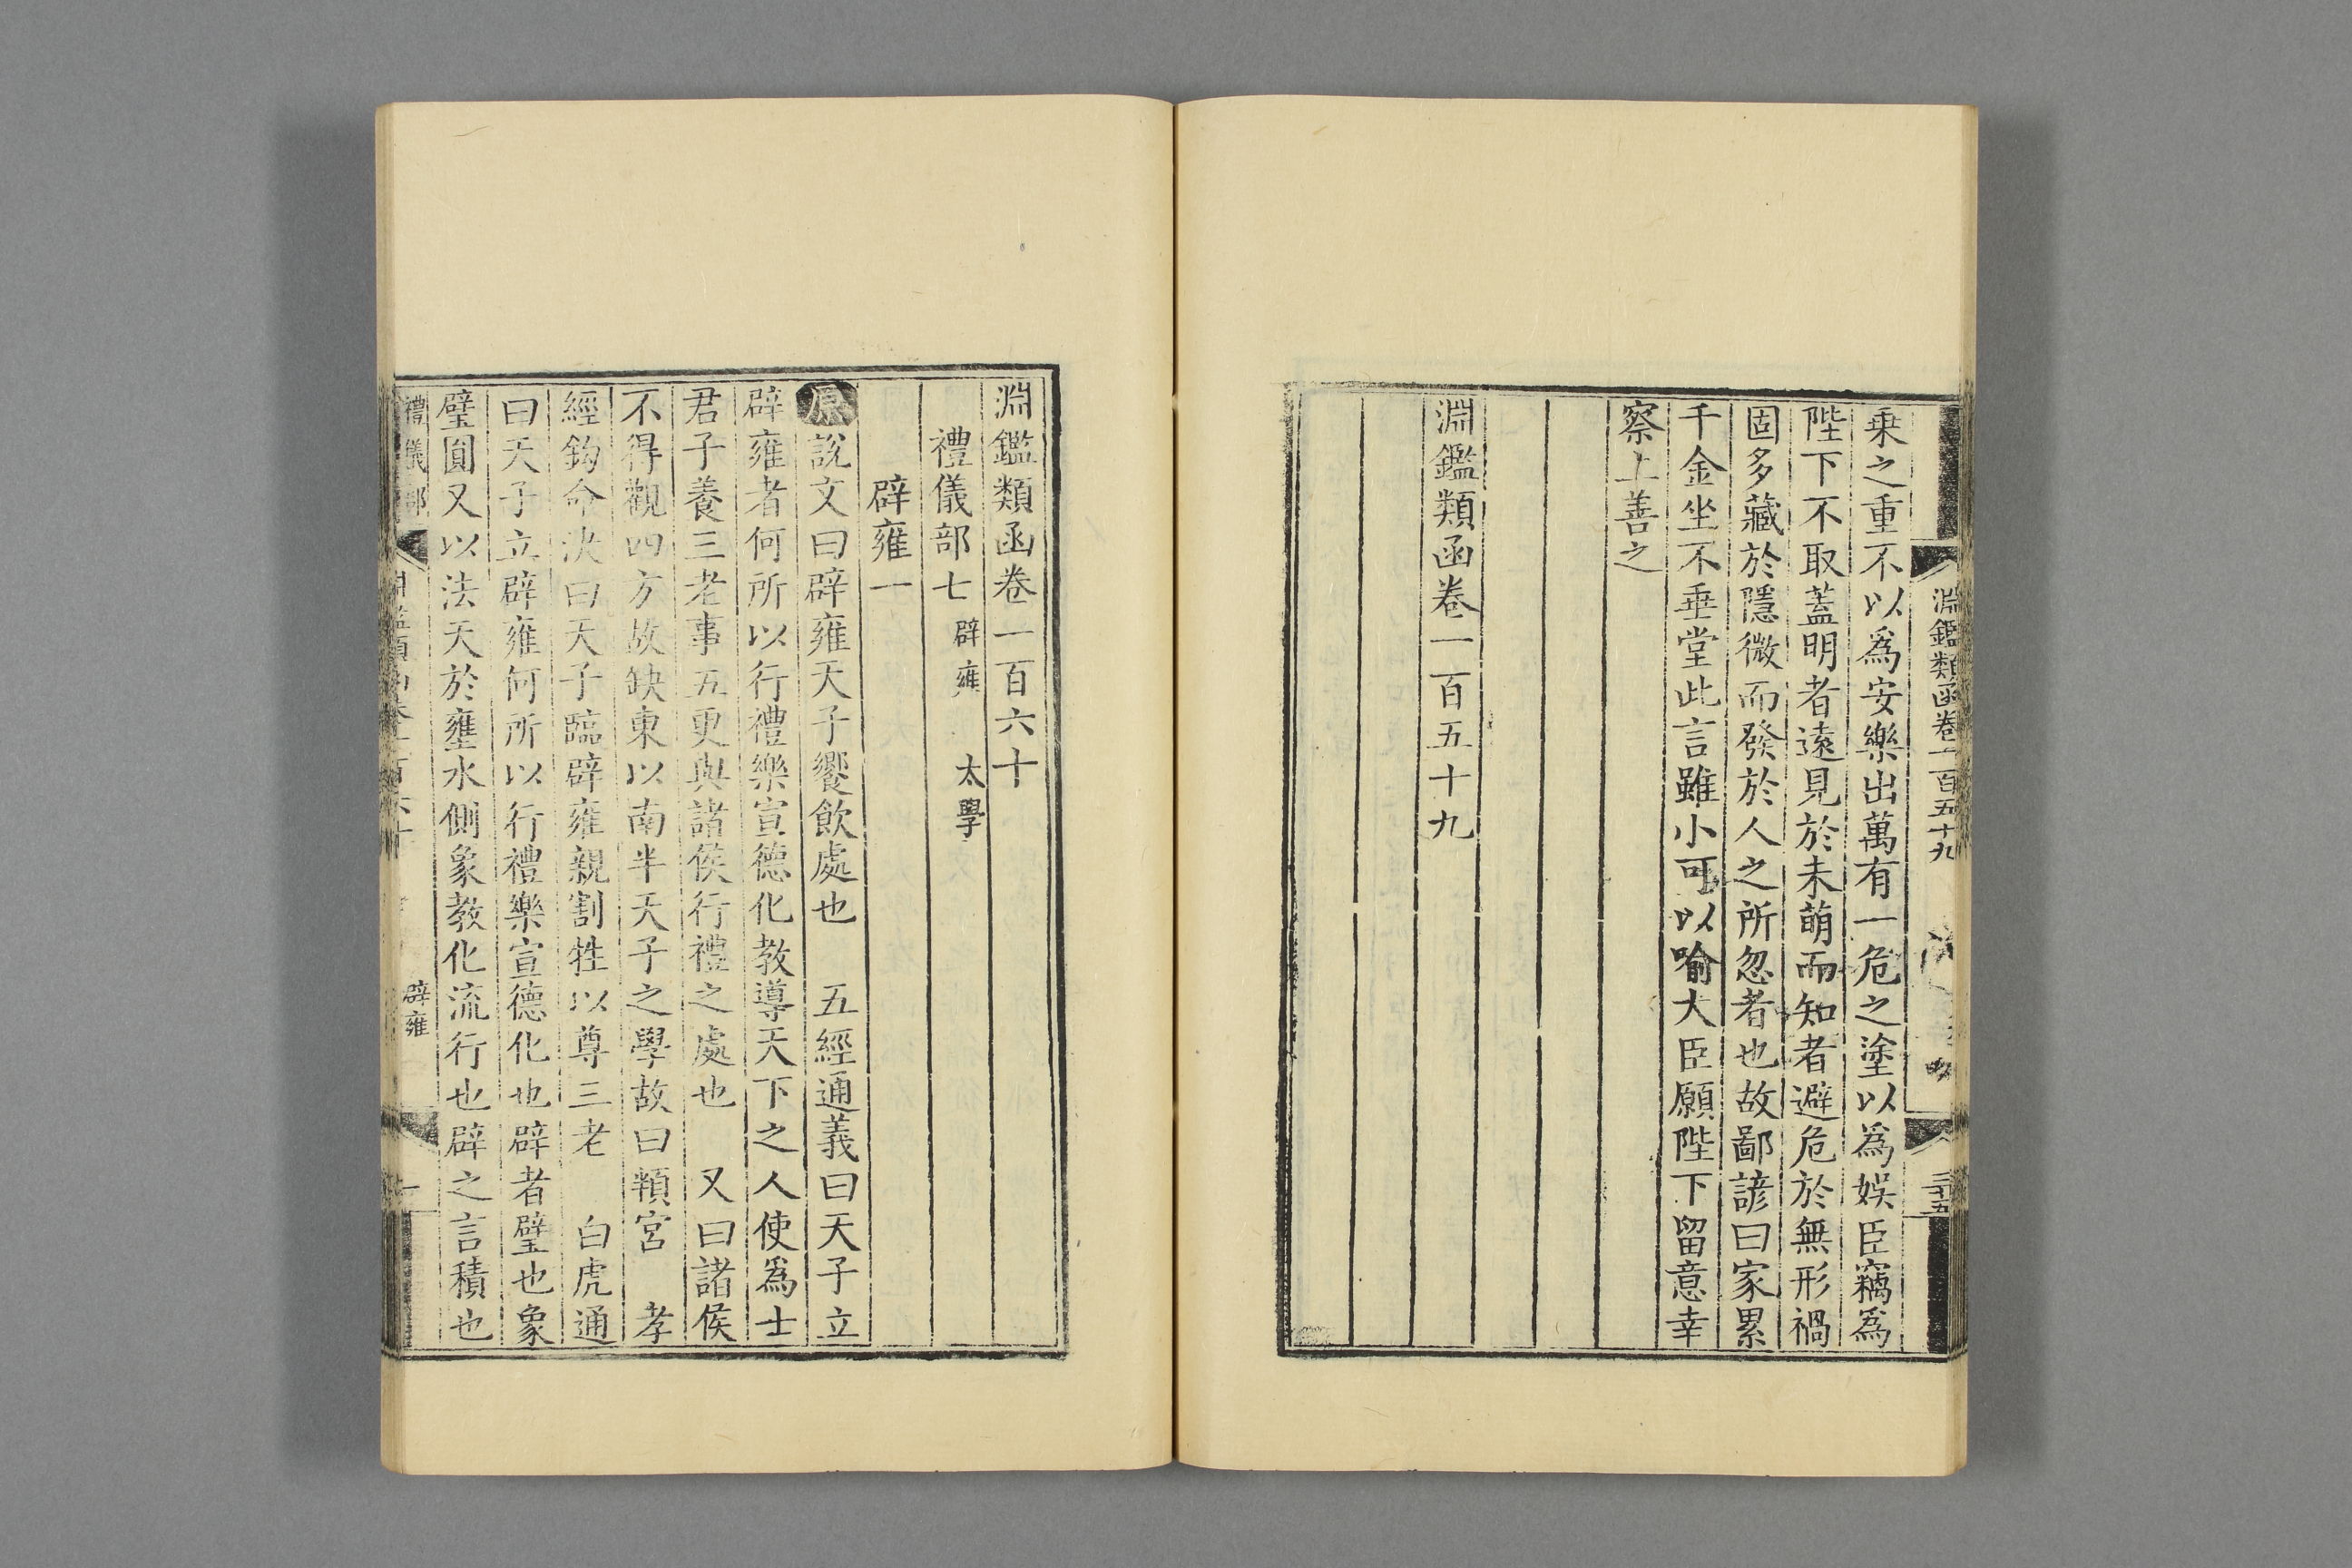 淵鑑類函卷一百五十九
三十五
乗之重不以爲安樂出萬有一危之塗以爲娯臣竊爲
陛下不取蓋明者遠見於未萌而知者避危於無形禍
固多藏於隱微而發於人之所忽者也故鄙諺曰家累
千金坐不垂堂此言雖小可以喻大臣願陛下留意幸
察上善之
淵鑑類函卷一百五十九
淵鑑類函卷一百六十
禮儀部七 辟雍 太學
辟雍一
原說文曰辟雍天子饗飲處也 五經通義曰天子立
辟雍者何所以行禮樂宣德化教導天下之人使爲士
君子養三老事五更與諸侯行禮之處也 又曰諸侯
不得觀四方故缺東以南半天子之學故曰頖宮 孝
經鈎命決曰天子臨辟雍親割牲以尊三老 白虎通
曰天子立辟雍何所以行禮樂宣德化也辟者璧也象
璧圓又以法天於壅水側象教化流行也辟之言積也
禮儀部
辟雍
一